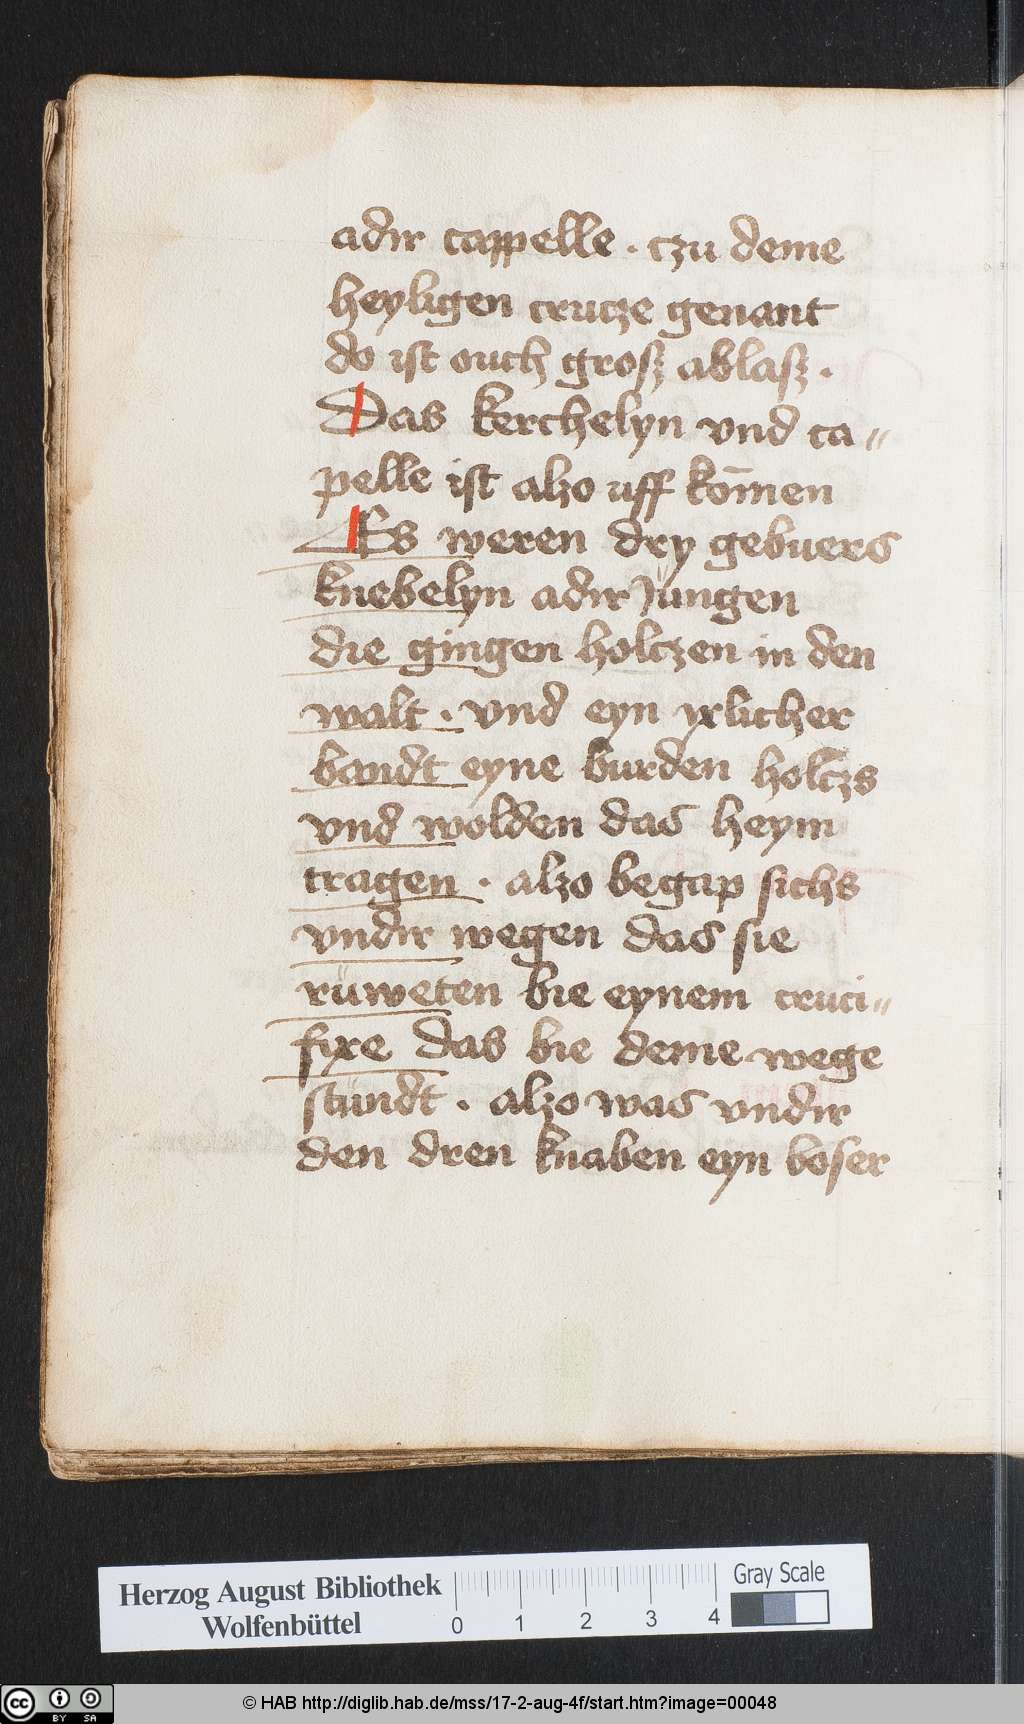 adir cappelle · tzu deme
heyligen crucze genant
do ist ouch grosz ablasz ·
Das kerchelyn vnd ca=
pelle ist alzo uff kom̄en
Es weren dry gebuers
knebelyn adir Jungen
die gingen holczen in den
walt · vnd eyn yxlicher
bandt eyne burden holczs
vnd wolden das heym
tragen · alzo begap sichs
vndir wegen das sie
rüweten bie eynem cruci=
fixe das bie deme wege
stundt · alzo was vndir
den dren knaben eyn boser
Herzog August Bibliothek
Wolfenbüttel
0 1 2 3 4
Gray Scale
cc BY SA
© HAB http://diglib.hab.de/mss/17-2-aug-4f/start.htm?image=00048